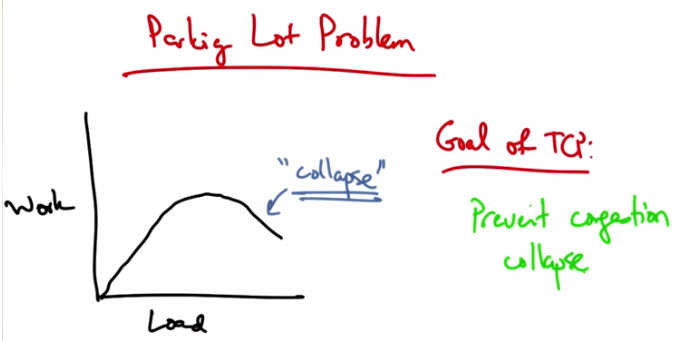 Parkig Lot Problem
Work
Load
"collapse"
Goal of TCP:
Prevent congestion
collapse